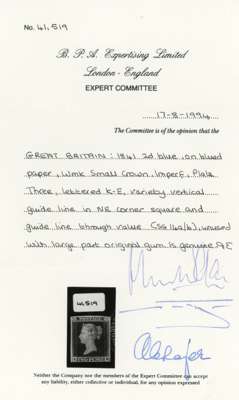 No. 41,519
B. P. A. Expertising Limited
London - England
EXPERT COMMITTEE
17-8-1994
The Committee is of the opinion that the
GREAT BRITAIN: 1841 2d blue, on blued
paper, Wmk Small Crown, Imperf, Plate
Three, lettered K-E, variety vertical
guide line in NE corner square and
guide line through value (SG 14a/b), unused
with large part original gum, is genuine.
41,519
POSTAGE
TWO PENCE
Neither the Company nor the members of the Expert Committee can accept
any liability, either collective or individual, for any opinion expressed